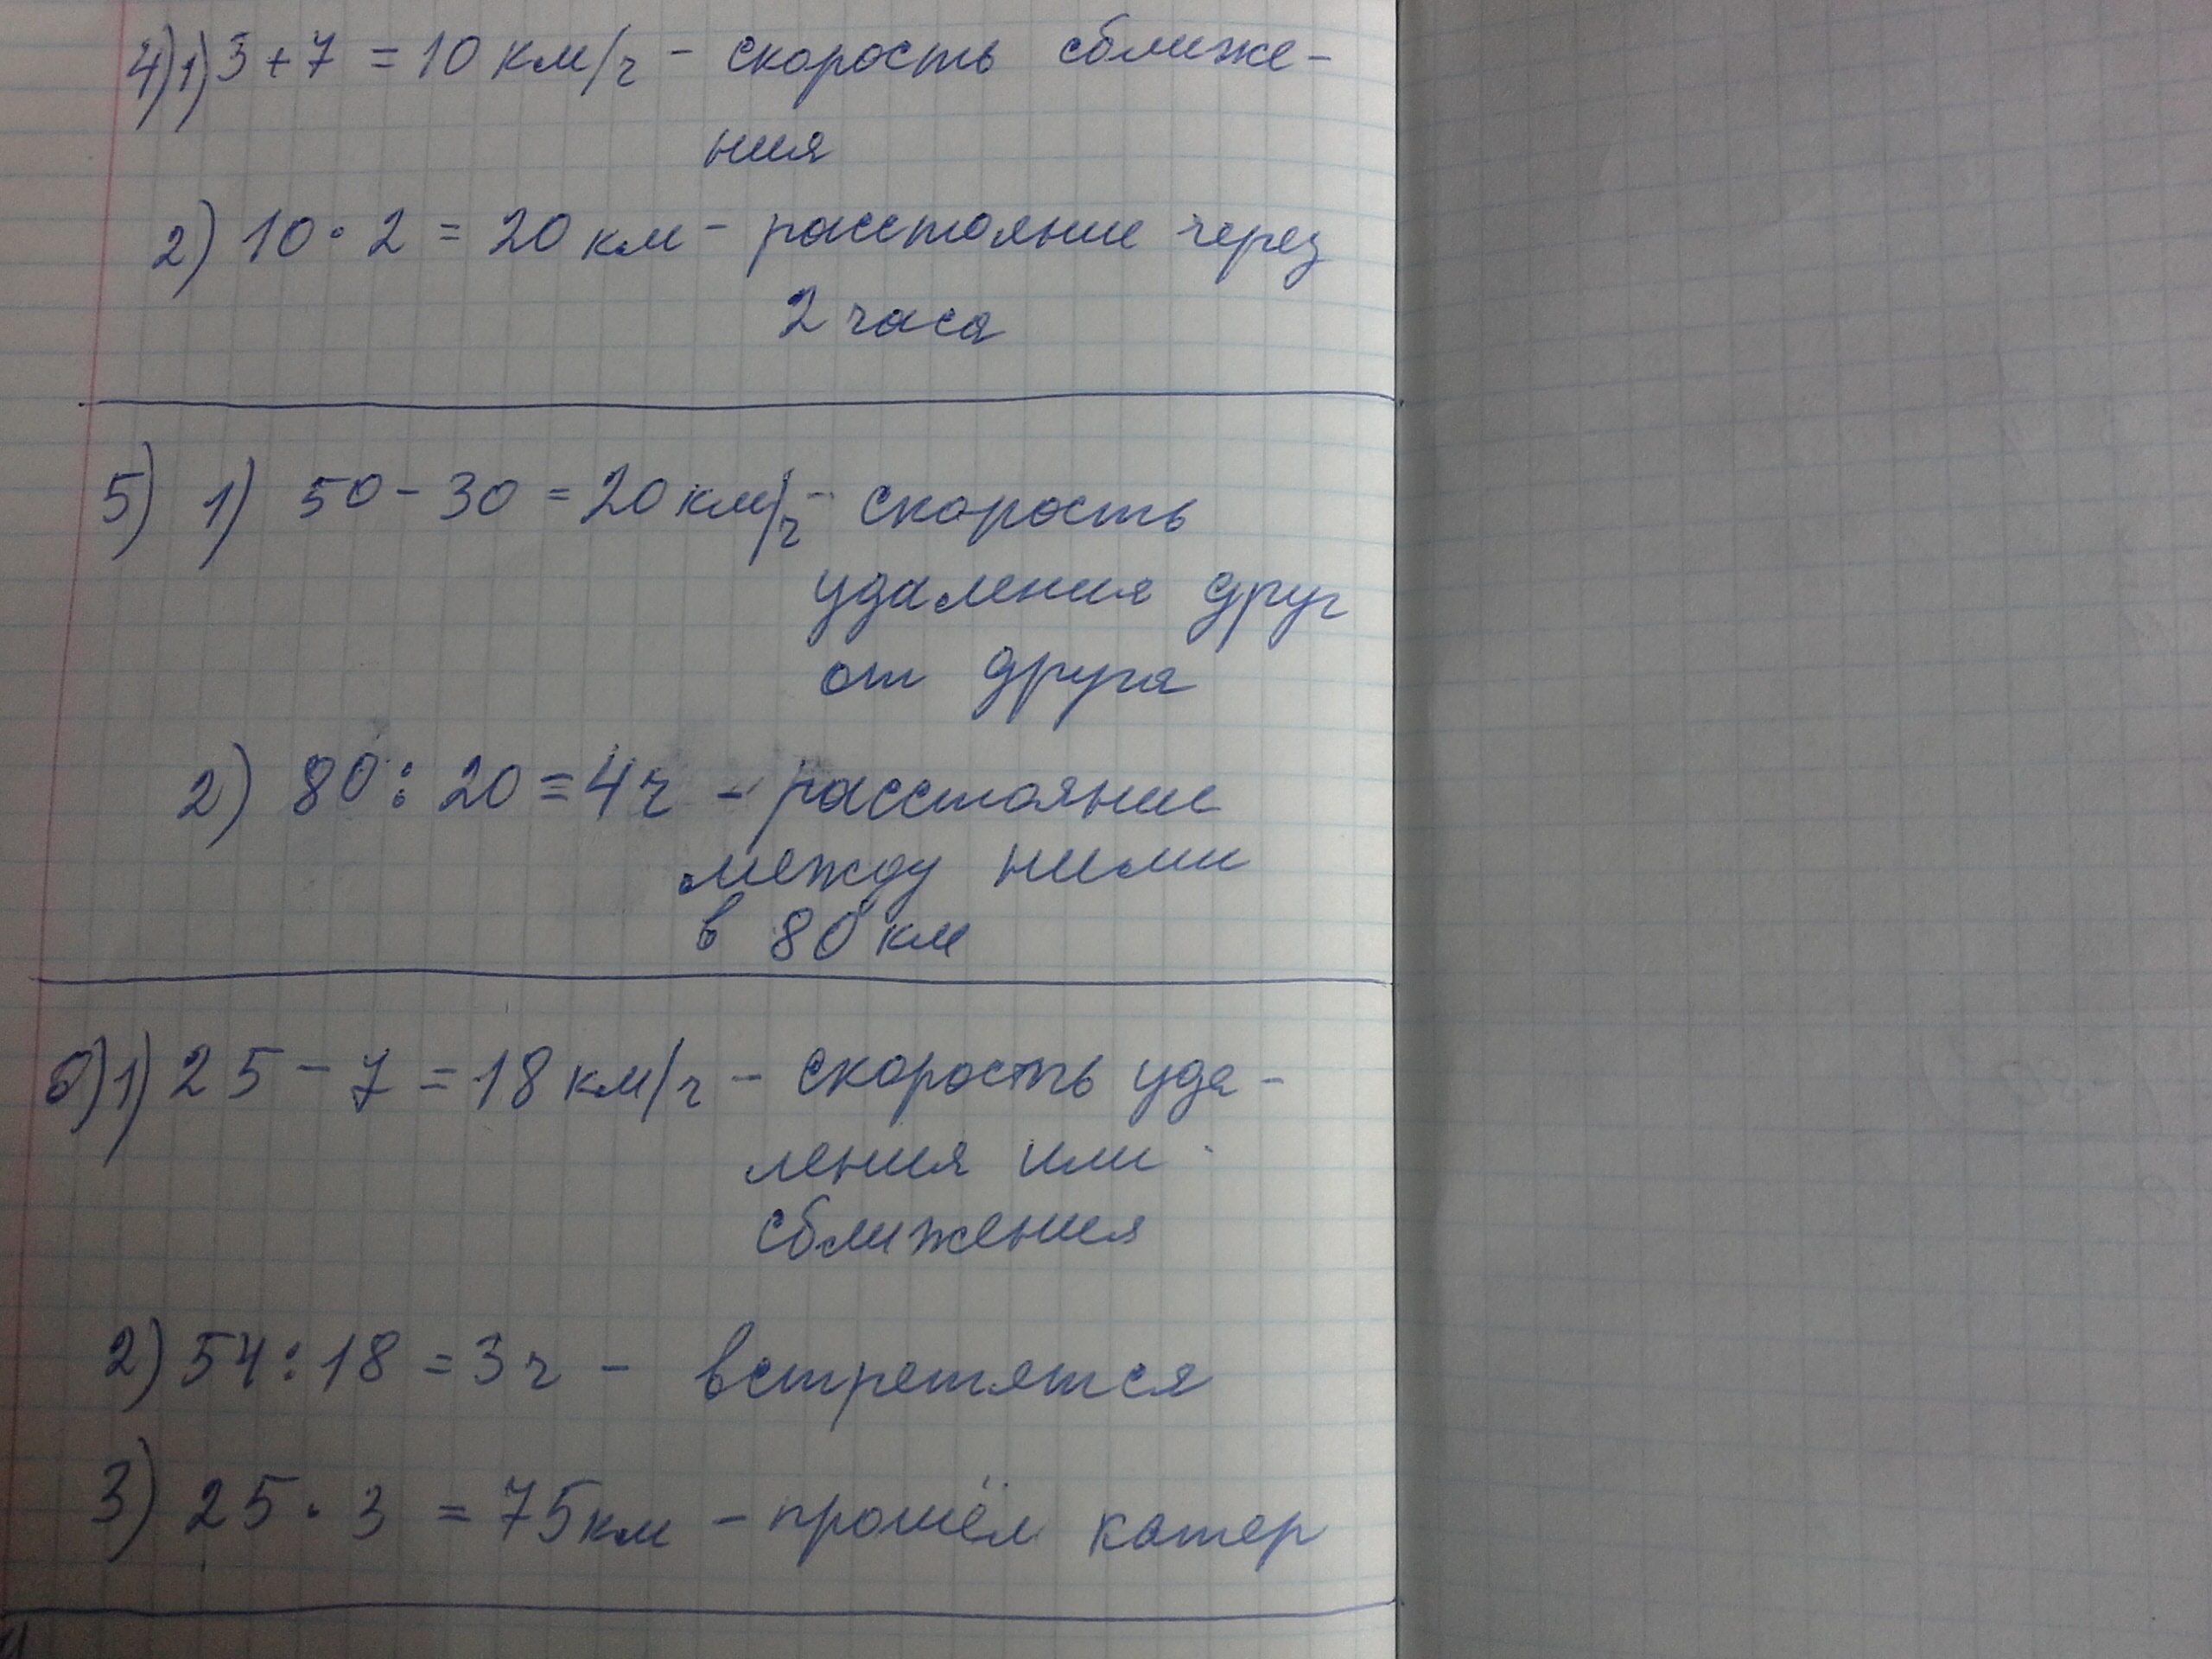 4) 1) 3 + 7 = 10 км/ч - скорость сближе-
ния
2) 10 · 2 = 20 км - расстояние через
2 часа
5) 1) 50 - 30 = 20 км/ч - скорость
удаления друг
от друга
2) 80 : 20 = 4 ч - расстояние
между ними
в 80 км
6) 1) 25 - 7 = 18 км/ч - скорость уда-
ления или
сближения
2) 54 : 18 = 3 ч - встретятся
3) 25 · 3 = 75 км - прошёл катер